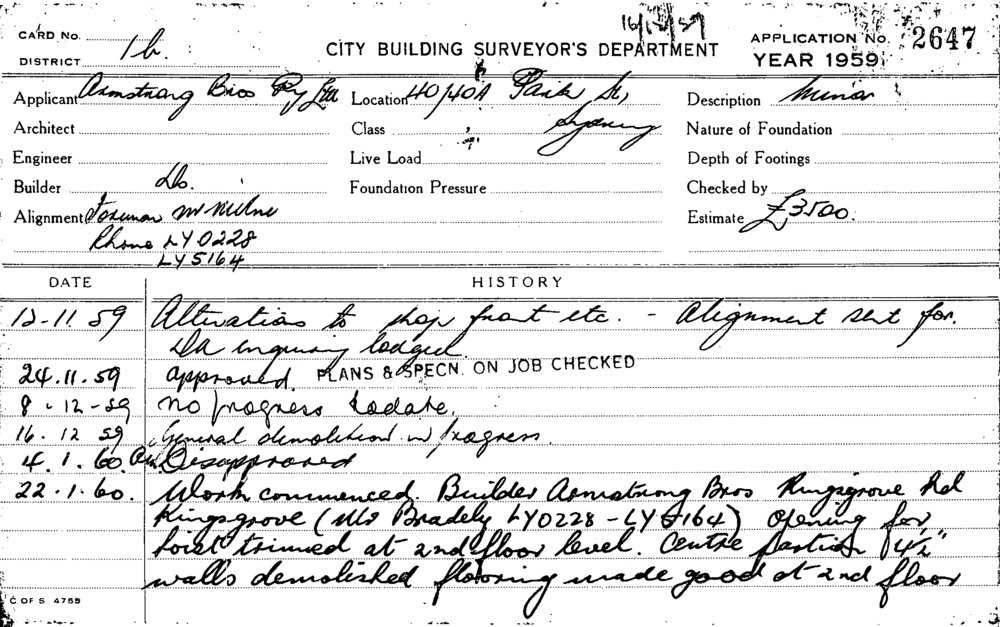 16/12/59
CARD No.
DISTRICT 1b.
CITY BUILDING SURVEYOR'S DEPARTMENT
APPLICATION No. 2647
YEAR 1959
Applicant Armstrong Bros Pty Ltd Location 40/40A Park St, Description Minor
Architect Class Sydney Nature of Foundation
Engineer Live Load Depth of Footings
Builder Do. Foundation Pressure Checked by
Alignment Foreman Mr Milne Estimate £3500.
Phone LY0228
LY5164
DATE HISTORY
12-11.59 Alterations to shop front etc. - Alignment sent for.
DA enquiry lodged.
24.11.59 approved. PLANS & SPECN. ON JOB CHECKED
8.12-59 no progress todate.
16.12 59 General demolition in progress.
4.1.60. Disapproved
22.1.60. Work commenced. Builder Armstrong Bros Kingsgrove Rd
Kingsgrove (Mr Bradely LY0228-LY5164) Opening for
hoist trimmed at 2nd floor level. Centre partion 4½"
walls demolished flooring made good at 2nd floor
C OF S 4785